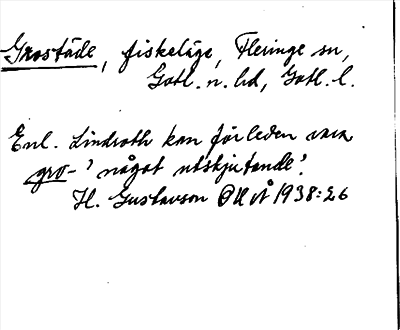 Grostäde, fiskeläge, Fleringe sn,
Gotl. n. hd, Gotl. l.
Enl. Lindroth kan förleden vara
gro- 'något utskjutande'.
H. Gustavson 1938:26